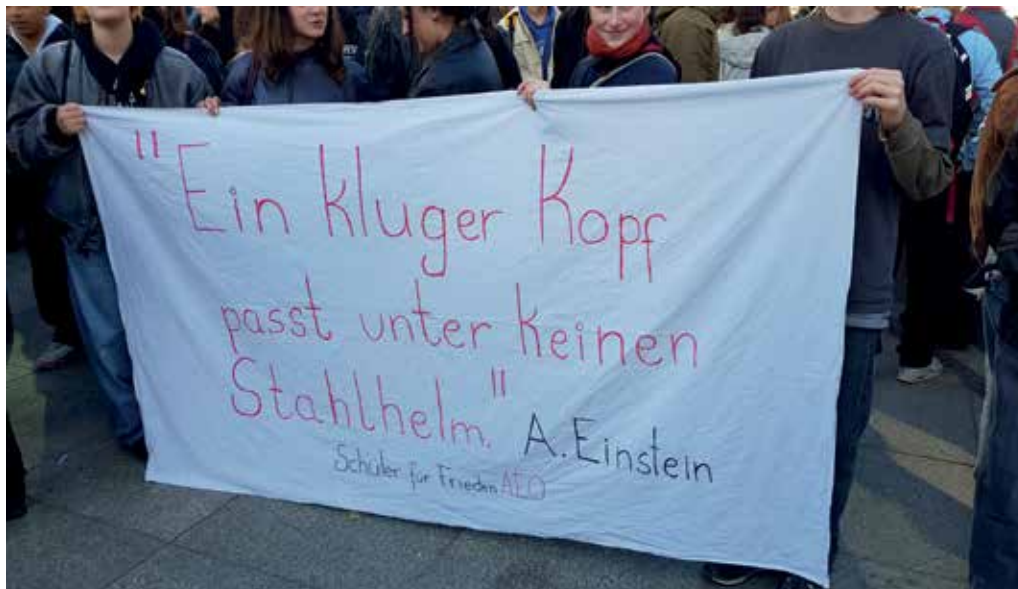 "Ein kluger Kopf
passt unter keinen
Stahlhelm." A. Einstein
Schüler für Frieden